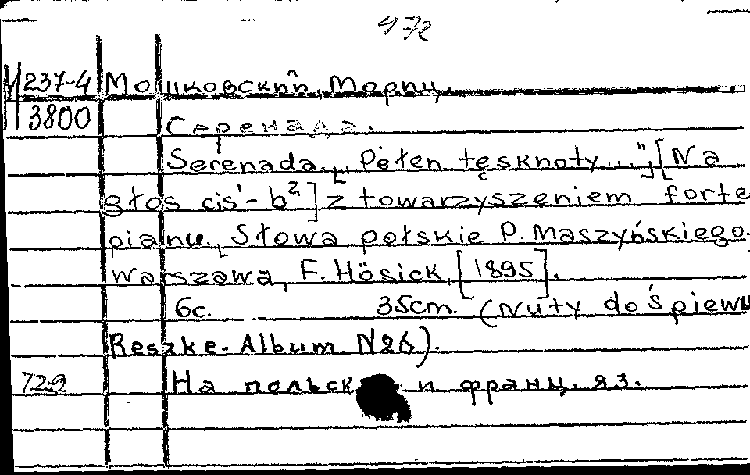 472
М 237-4 Мошковский, Мориц.
3800 Серенада.
Serenada „Pełen tęsknoty...", [Na
głos cis¹-b²] z towarzyszeniem forte
pianu. Słowa polskie P. Maszyńskiego.
Warszawa, F. Hösick, [1895].
6c. 35cm. (Nuty do śpiewu
Reszke-Album N26).
729 На польск и франц. яз.